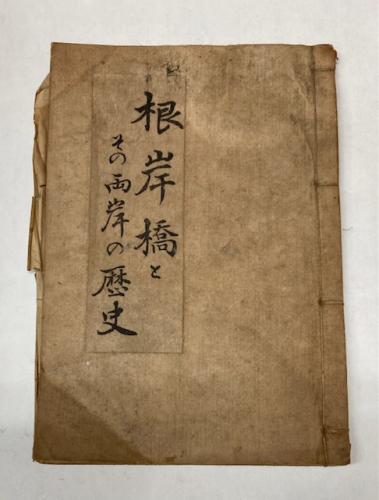 根岸橋と
その両岸の歴史